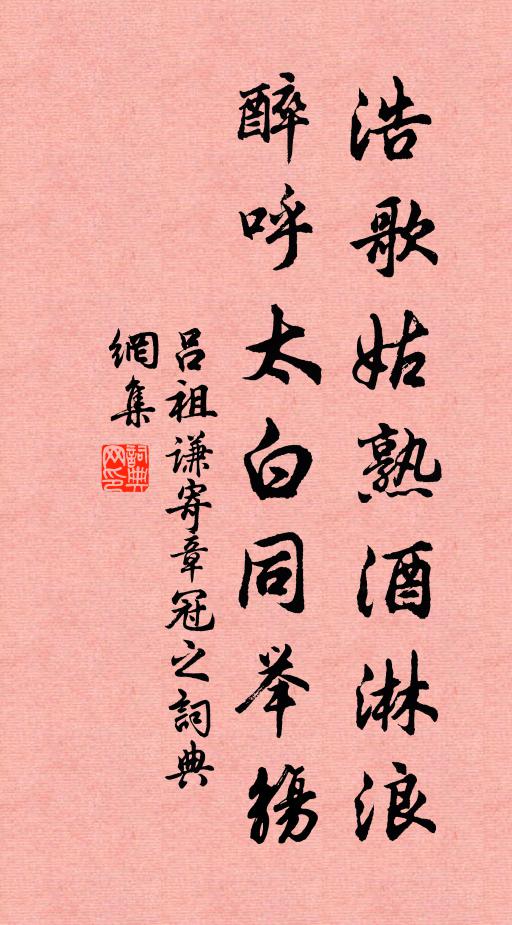 浩歌姑熟酒淋浪
醉呼太白同举觞
吕祖谦寄章冠之詞典
網集
詞典
网印